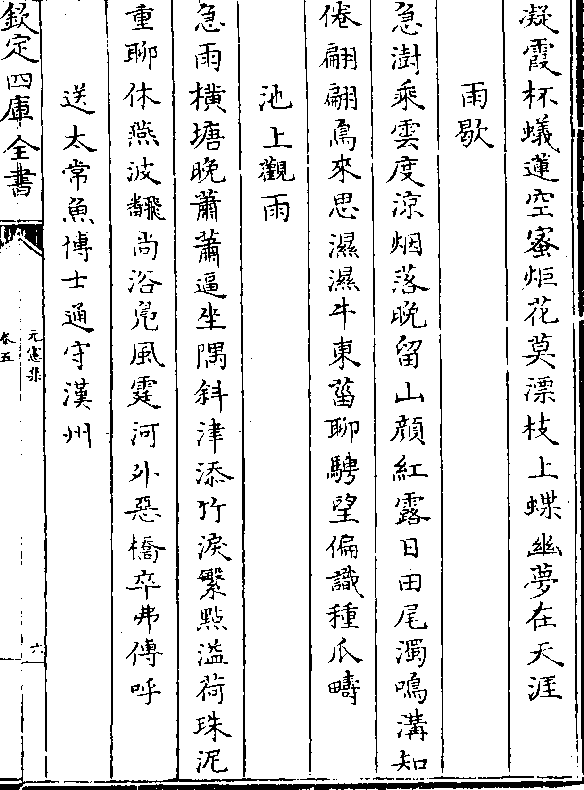 凝霞杯蟻蓮空蜜炬花莫漂枝上蝶幽夢在天涯
雨歇
急澍乘雲度涼烟落晩留山顔紅露日田尾濁鳴溝知
倦翩翩鳥來思濕濕牛東菑聊騁望偏識種瓜疇
池上觀雨
急雨橫塘晩蕭蕭逼坐隅斜津添竹淚繁點溢荷珠泥
重聊休燕波翻尚浴鳬風霆河外惡橋卒弗傳呼
送太常魚博士通守漢州
欽定四庫全書
元憲集
卷五
六